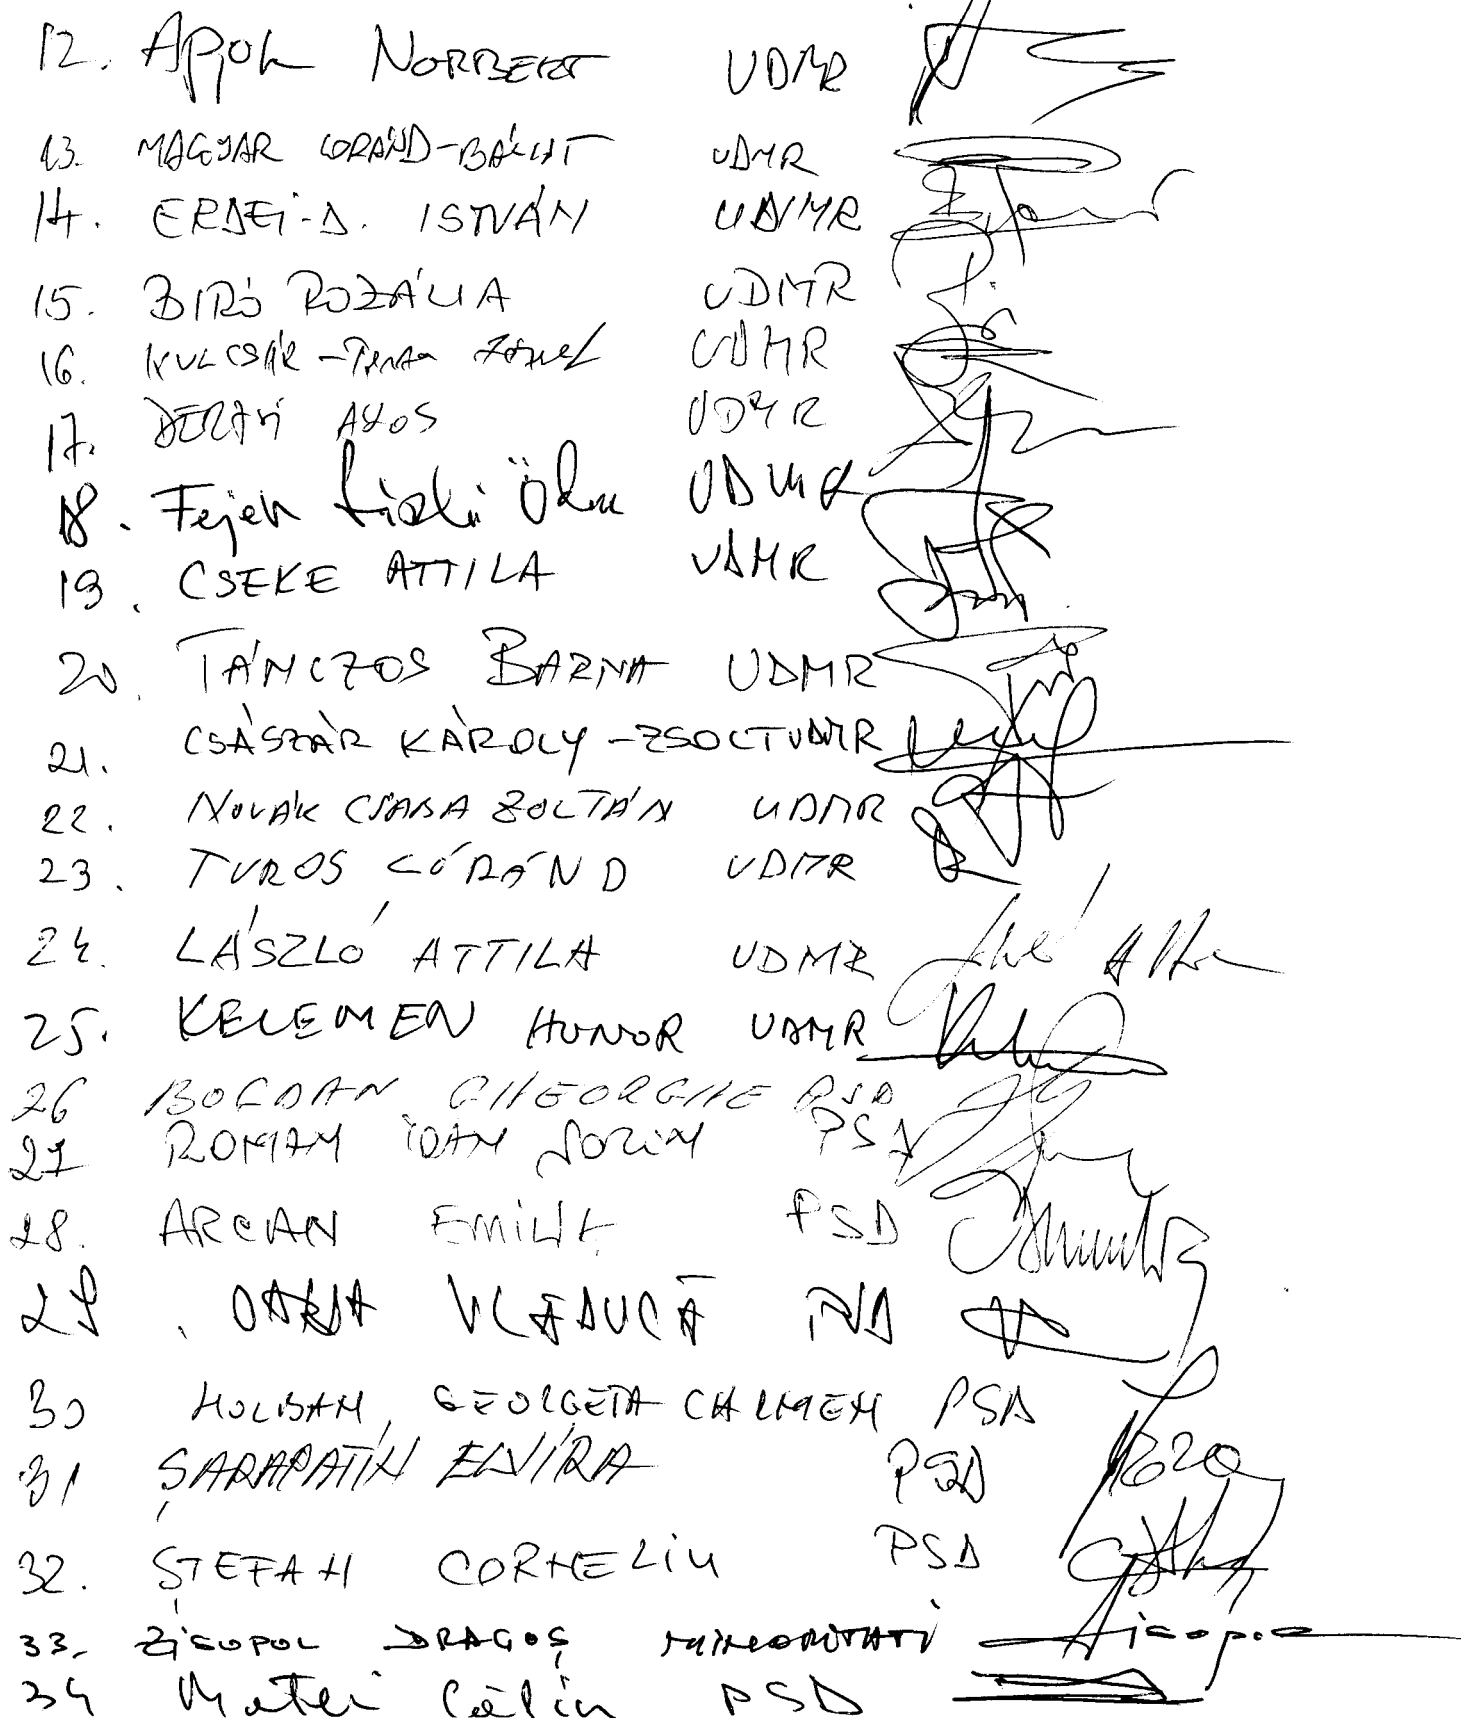 12. Apjok NORBERT UDMR
13. MAGYAR LORÁND-BÁLINT UDMR
14. ERDEI-D. ISTVÁN UDMR
15. BIRÓ ROZÁLIA UDMR
16. KULCSÁR-Terza József UDMR
17. DERZSI AKOS UDMR
18. Fejér László Ödön UDMR
19. CSEKE ATTILA UDMR
20. TÁNCZOS BARNA UDMR
21. CSÁSZÁR KÁROLY-ZSOLT UDMR
22. NOVÁK CSABA ZOLTÁN UDMR
23. TUROS LÓRÁND UDMR
24. LÁSZLÓ ATTILA UDMR
25. KELEMEN HUNOR UDMR
26 BOGDAN GHEORGHE PSD
27 ROMAN IOAN SORIN PSD
28. ARCAN EMILIA PSD
29. VLĂDUCĂ PSD
30 HOLBAN GEORGETA CARMEN PSD
31 ȘARAPATIN ELVIRA PSD
32. ȘTEFAN CORNELIU PSD
33. ZISOPOL DRAGOȘ MINORITATI
34 Matei Călin PSD